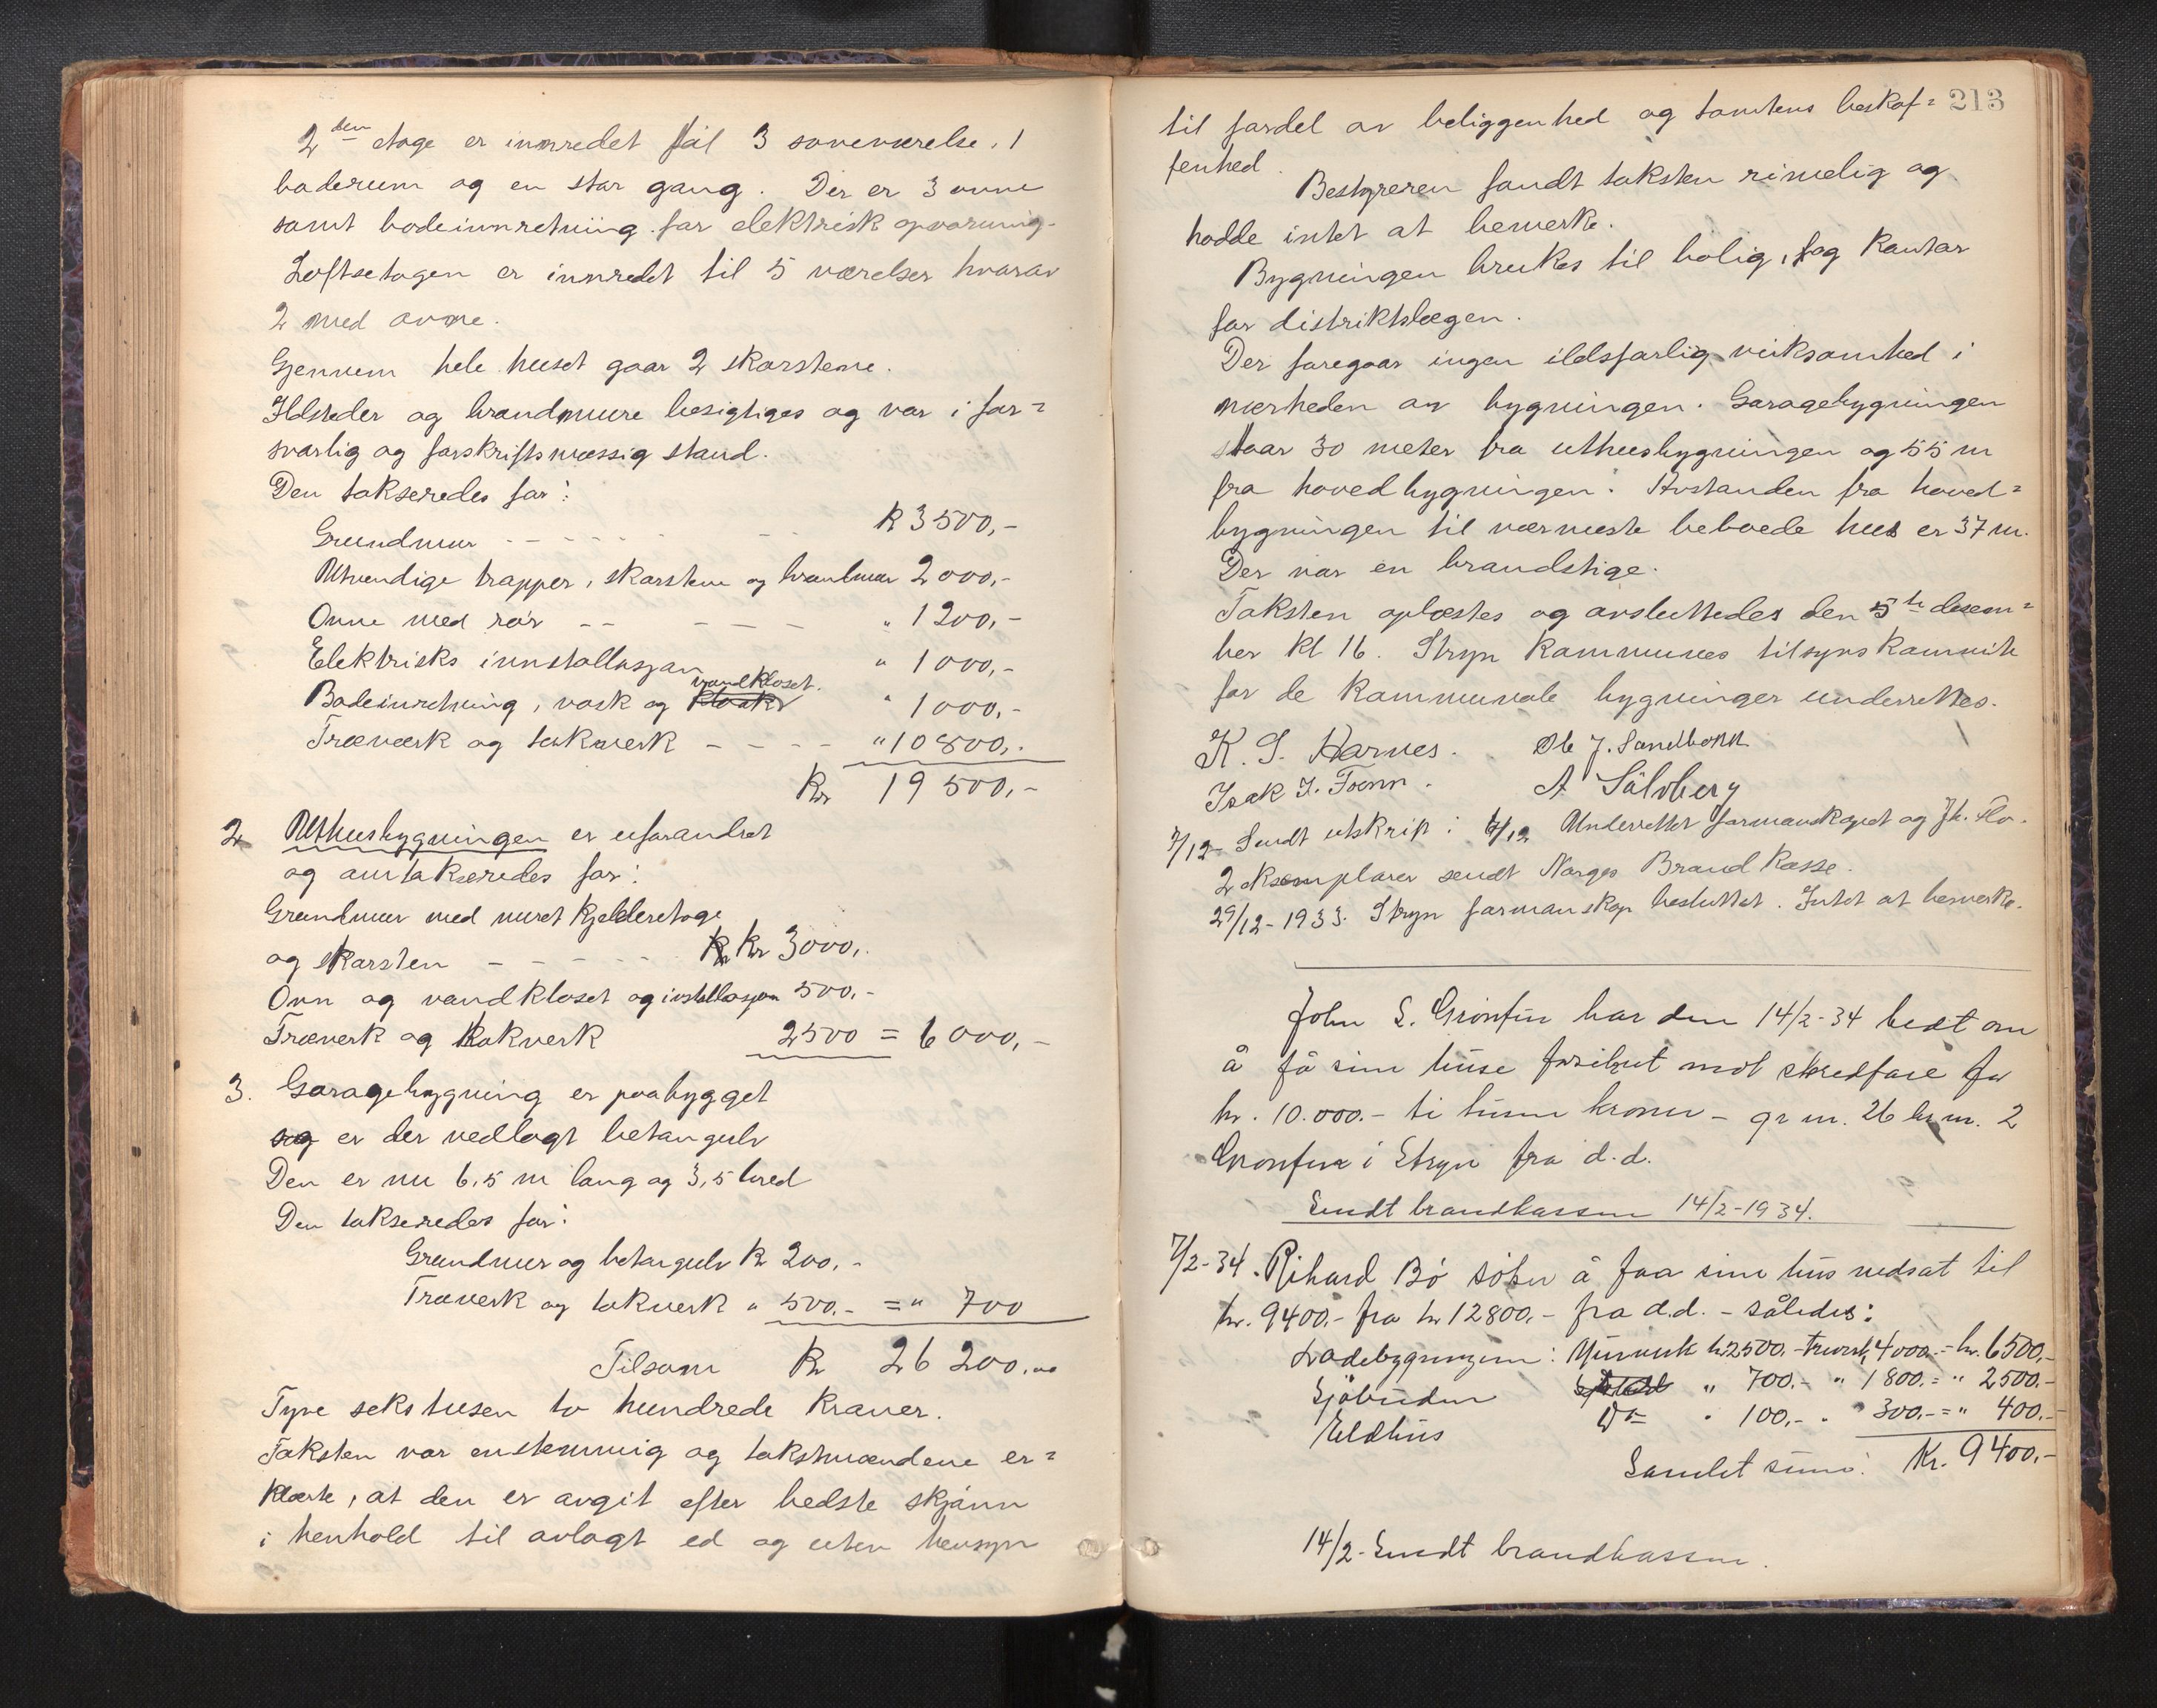 2den etage er innredet til 3 soveværelse, 1
baderum og en stor gang. Der er 3 ovne
samt badeinnretning for elektrisk opvarming.
Loftsetagen er innredet til 5 værelser hvorav
2 med ovne.
Gjennem hele huset gaar 2 skorstene.
Ildsteder og brandmure besigtiges og var i for=
svarlig og forskriftsmæssig stand.
Den takseredes for:
Grundmur - - - - - - - - K 3500,-
Utvendige trapper, skorstene og brandmur 2000,-
Ovne med rør - - - - - " 1200,-
Elektriske innstallasjon " 1000,-
Badeinretning, vask og vandkloset. " 1000,-
Træværk og takverk - - - - " 10800,-
Kr 19500,-
2 Uthusbygningen er uforandret
og omtakseredes for:
Grundmur med muret kjelderetage
og skorsten - - - - - Kr 3000,-
Ovn og vandkloset og instellasjon 500,-
Træverk og takverk 2500 = 6000,-
3. Garagebygning er paabygget
og er der vedlagt betongulv
Den er nu 6,5 m lang og 3,5 bred
Den takseredes for:
Grundmur og betongulv K 200,-
Træverk og takverk " 500,- = " 700
Tilsam Kr 26 200,00
Tyve sekstusen to hundrede kroner.
Taksten var enstemmig og takstmændene er=
klærte, at den er avgit efter bedste skjønn
i henhold til avlagt ed og uten hensyn
213
til fordel av beliggenhed og tomtens beskaf=
fenhed.
Bestyreren fandt taksten rimelig og
hadde intet at bemerke.
Bygningen brukes til bolig, og kontor
for distriktslægen.
Der foregaar ingen ildsfarlig virksomhed i
nærheden av bygningen. Garagebygningen
staar 30 meter fra uthusbygningen og 55 m
fra hovedbygningen. Avstanden fra hoved=
bygningen til nærmeste beboede hus er 37 m.
Der var en brandstige.
Taksten oplæstes og avsluttedes den 5te desem=
ber kl 16. Stryn kommunes tilsynskomite
for de kommunale bygninger underrettes.
K. S. Harnes. Ole J. Sandbakk
Isak I. Tonn. A Sølvberg
7/12 - Sendt utskrip: 7/12 Underrettet formanskapet og Jk. Flo.
2 eksemplarer sendt Norges Brandkasse.
29/12-1933. Stryn formanskap besluttet. Intet at bemerke.
John S. Grønfur har den 14/2-34 bedt om
å få sine huse forsikret mot skredfare for
kr. 10.000.- ti tusen kroner - gr nr. 26 br nr. 2
Grønfur i Stryn fra d.d.
Sendt brandkassen 14/2-1934.
7/2-34. Rikard Bø søker å faa sine hus nedsat til
kr. 9400.- fra kr 12800,- fra d.d. - således:
Ladebygningen: Murverk kr 2500,- treverk 4000.- = kr. 6500,-
Sjøbuden " 700.- " 1800.= " 2500.-
Eldhus Do " 100,- " 300,-=" 400.-
Samlet sum: Kr. 9400,-
14/2- Sendt brandkassen.